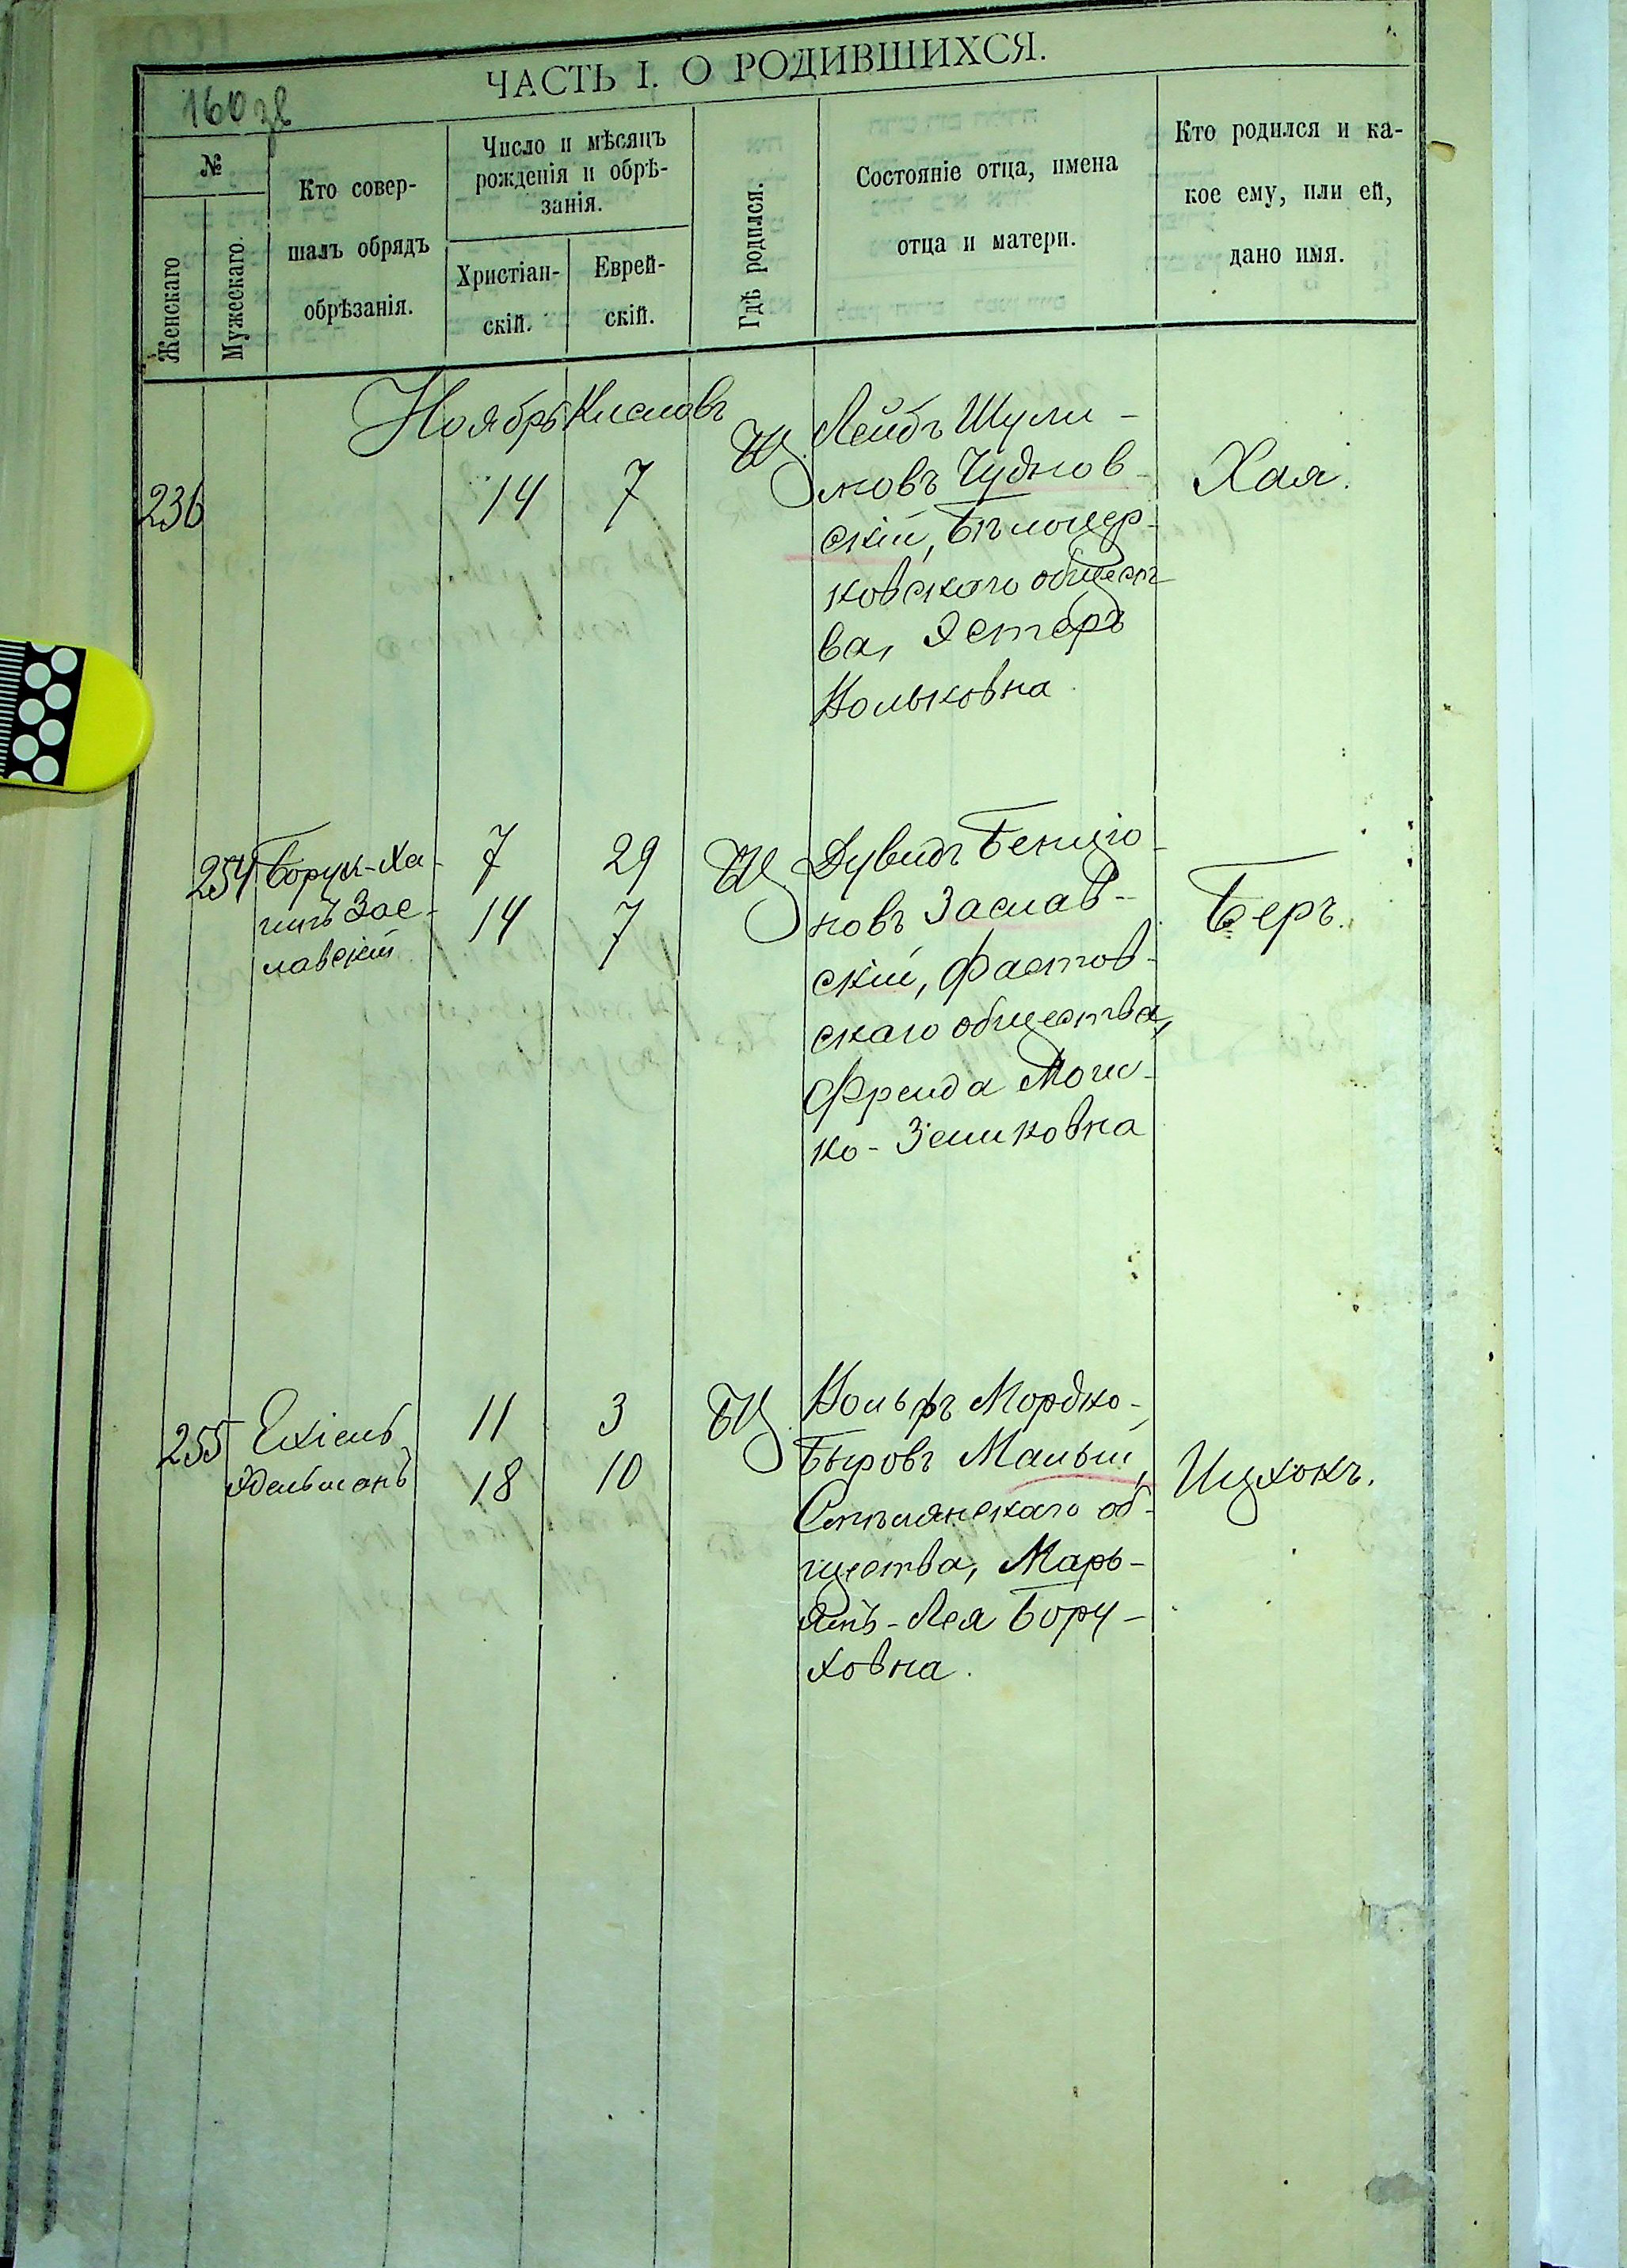 160 зв
ЧАСТЬ I. О РОДИВШИХСЯ.
№
Женскаго
Мужескаго.
Кто совер-
шалъ обрядъ
обрѣзанія.
Число и мѣсяцъ
рожденія и обрѣ-
занія.
Христіан-
скій.
Еврей-
скій.
Гдѣ родился.
Состояніе отца, имена
отца и матери.
Кто родился и ка-
кое ему, или ей,
дано имя.
Ноябрь Кислевъ
236
14
7
БЦ.
Лейбъ Шули-
мовъ Чуднов-
скій, Бѣлоцер-
ковскаго общест-
ва, Эстеръ
Вольковна.
Хая.
254
Борух-Ха-
имъ Зас-
лавскій
7
29
14
7
БЦ
Дувидъ Бенціо-
новъ Заслав-
скій, Фастов-
скаго общества,
Фрейда Мош-
ко-Зейликовна
Беръ.
255
Ехіель
Эдельманъ
11
3
18
10
БЦ.
Вольфъ Мордко-
Беровъ Малый,
скаго об-
щества, Марь-
ямъ-Лея Бору-
ховна.
Ицхокъ.